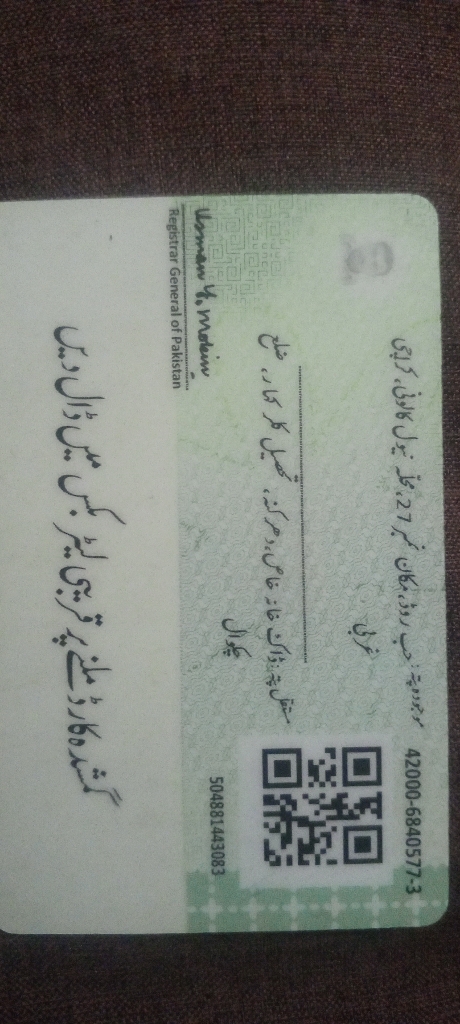 42000-6840577-3
موجودہ پتہ: حب روڈ، مکان نمبر 27، محلہ نیول کالونی، کراچی
غربی
مستقل پتہ: ڈاک خانہ خاص، دھرکنہ، تحصیل کلر کہار، ضلع
چکوال
504881443083
Usman Y. Mobin
Registrar General of Pakistan
گمشدہ کارڈ ملنے پر قریبی لیٹر بکس میں ڈال دیں